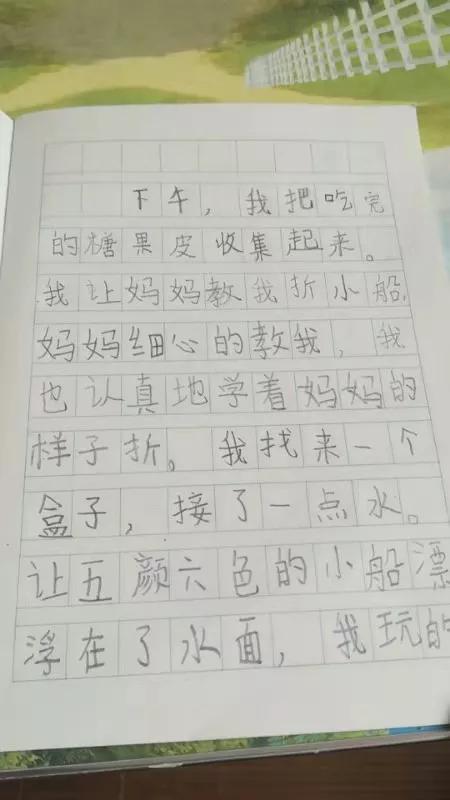 下午，我把吃完
的糖果皮收集起来。
我让妈妈教我折小船，
妈妈细心的教我，我
也认真地学着妈妈的
样子折。我找来一个
盒子，接了一点水。
让五颜六色的小船漂
浮在了水面，我玩的